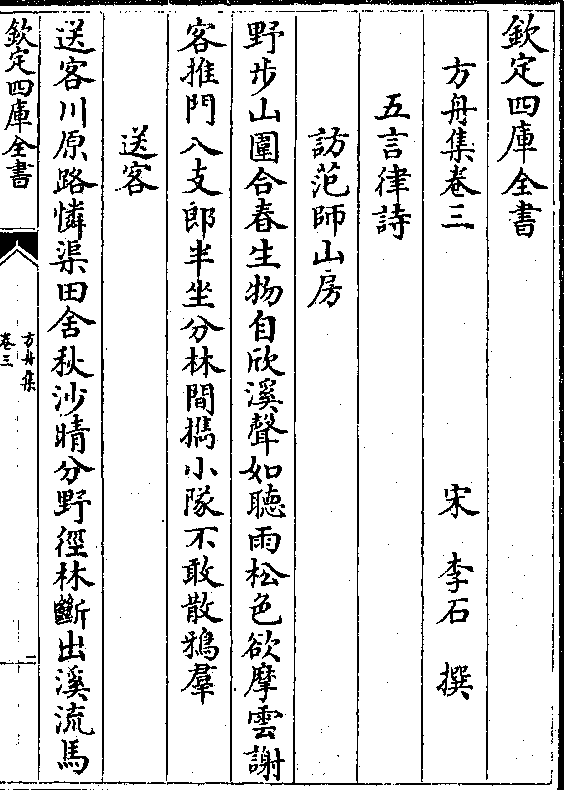 欽定四庫全書
方舟集卷三
宋 李石 撰
五言律詩
訪范師山房
野步山圍合春生物自欣溪聲如聽雨松色欲摩雲謝
客推門八支郎半坐分林間擕小隊不敢散鴉羣
送客
送客川原路憐渠田舍秋沙晴分野徑林斷出溪流馬
欽定四庫全書
方舟集
卷三
二